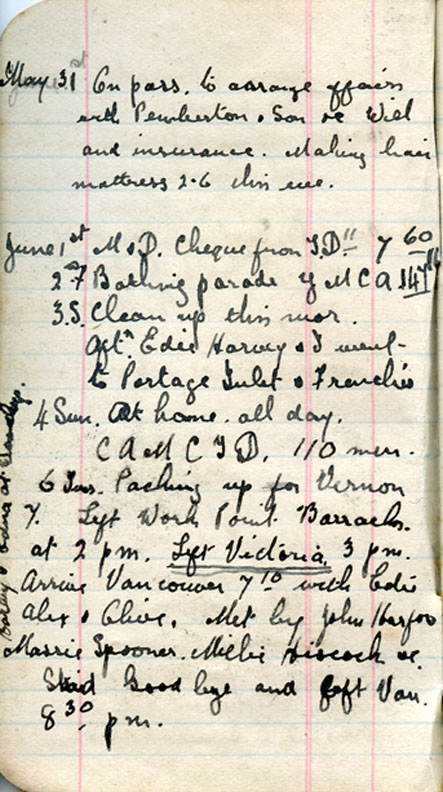 May 31 On pass. to arrange affairs
with Pemberton & Son re Will
and insurance. Making hair
mattress 2-6 this eve.
June 1st M & D. Cheque from
2 F Bathing parade Y M C A
3. S. Clean up this mor.
Aft. Edie Harvey & I went
to Portage Inlet &
4 Sun. At home all day.
C A M C T D. 110 men.
6 Tus. Packing up for Vernon
7. Left Work Point Barracks.
at 2 pm. Left Victoria 3 pm.
Arrive Vancouver 7 10 with Edie
Alex & Olive. Met by John
Spooner. Millie Hiscock
Said Good bye and left Van.
8 30 pm.